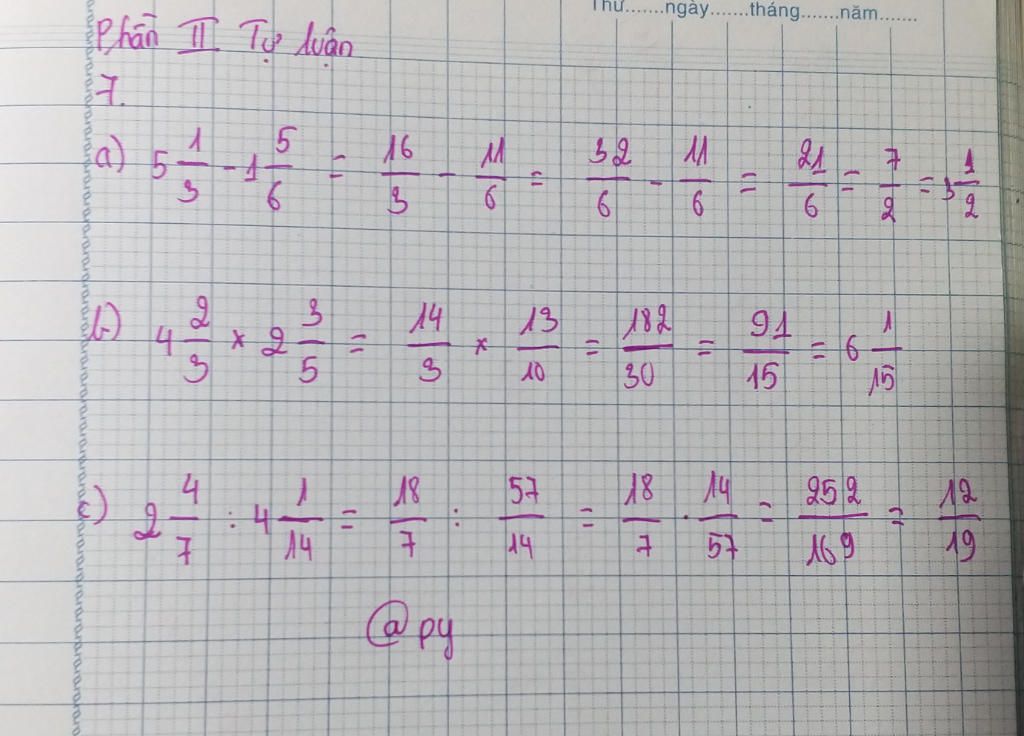 Thứ.......ngày.......tháng.......năm.......
Phần II Tự luận
7.
a) 5 1/3 - 1 5/6 = 16/3 - 11/6 = 32/6 - 11/6 = 21/6 = 7/2 = 3 1/2
b) 4 2/3 × 2 3/5 = 14/3 × 13/10 = 182/30 = 91/15 = 6 1/15
c) 2 4/7 : 4 1/14 = 18/7 : 57/14 = 18/7 . 14/57 = 252/169 = 12/19
@py